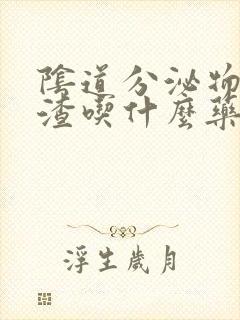 陰道分泌物
渣喫什麼藥
浮生歲月